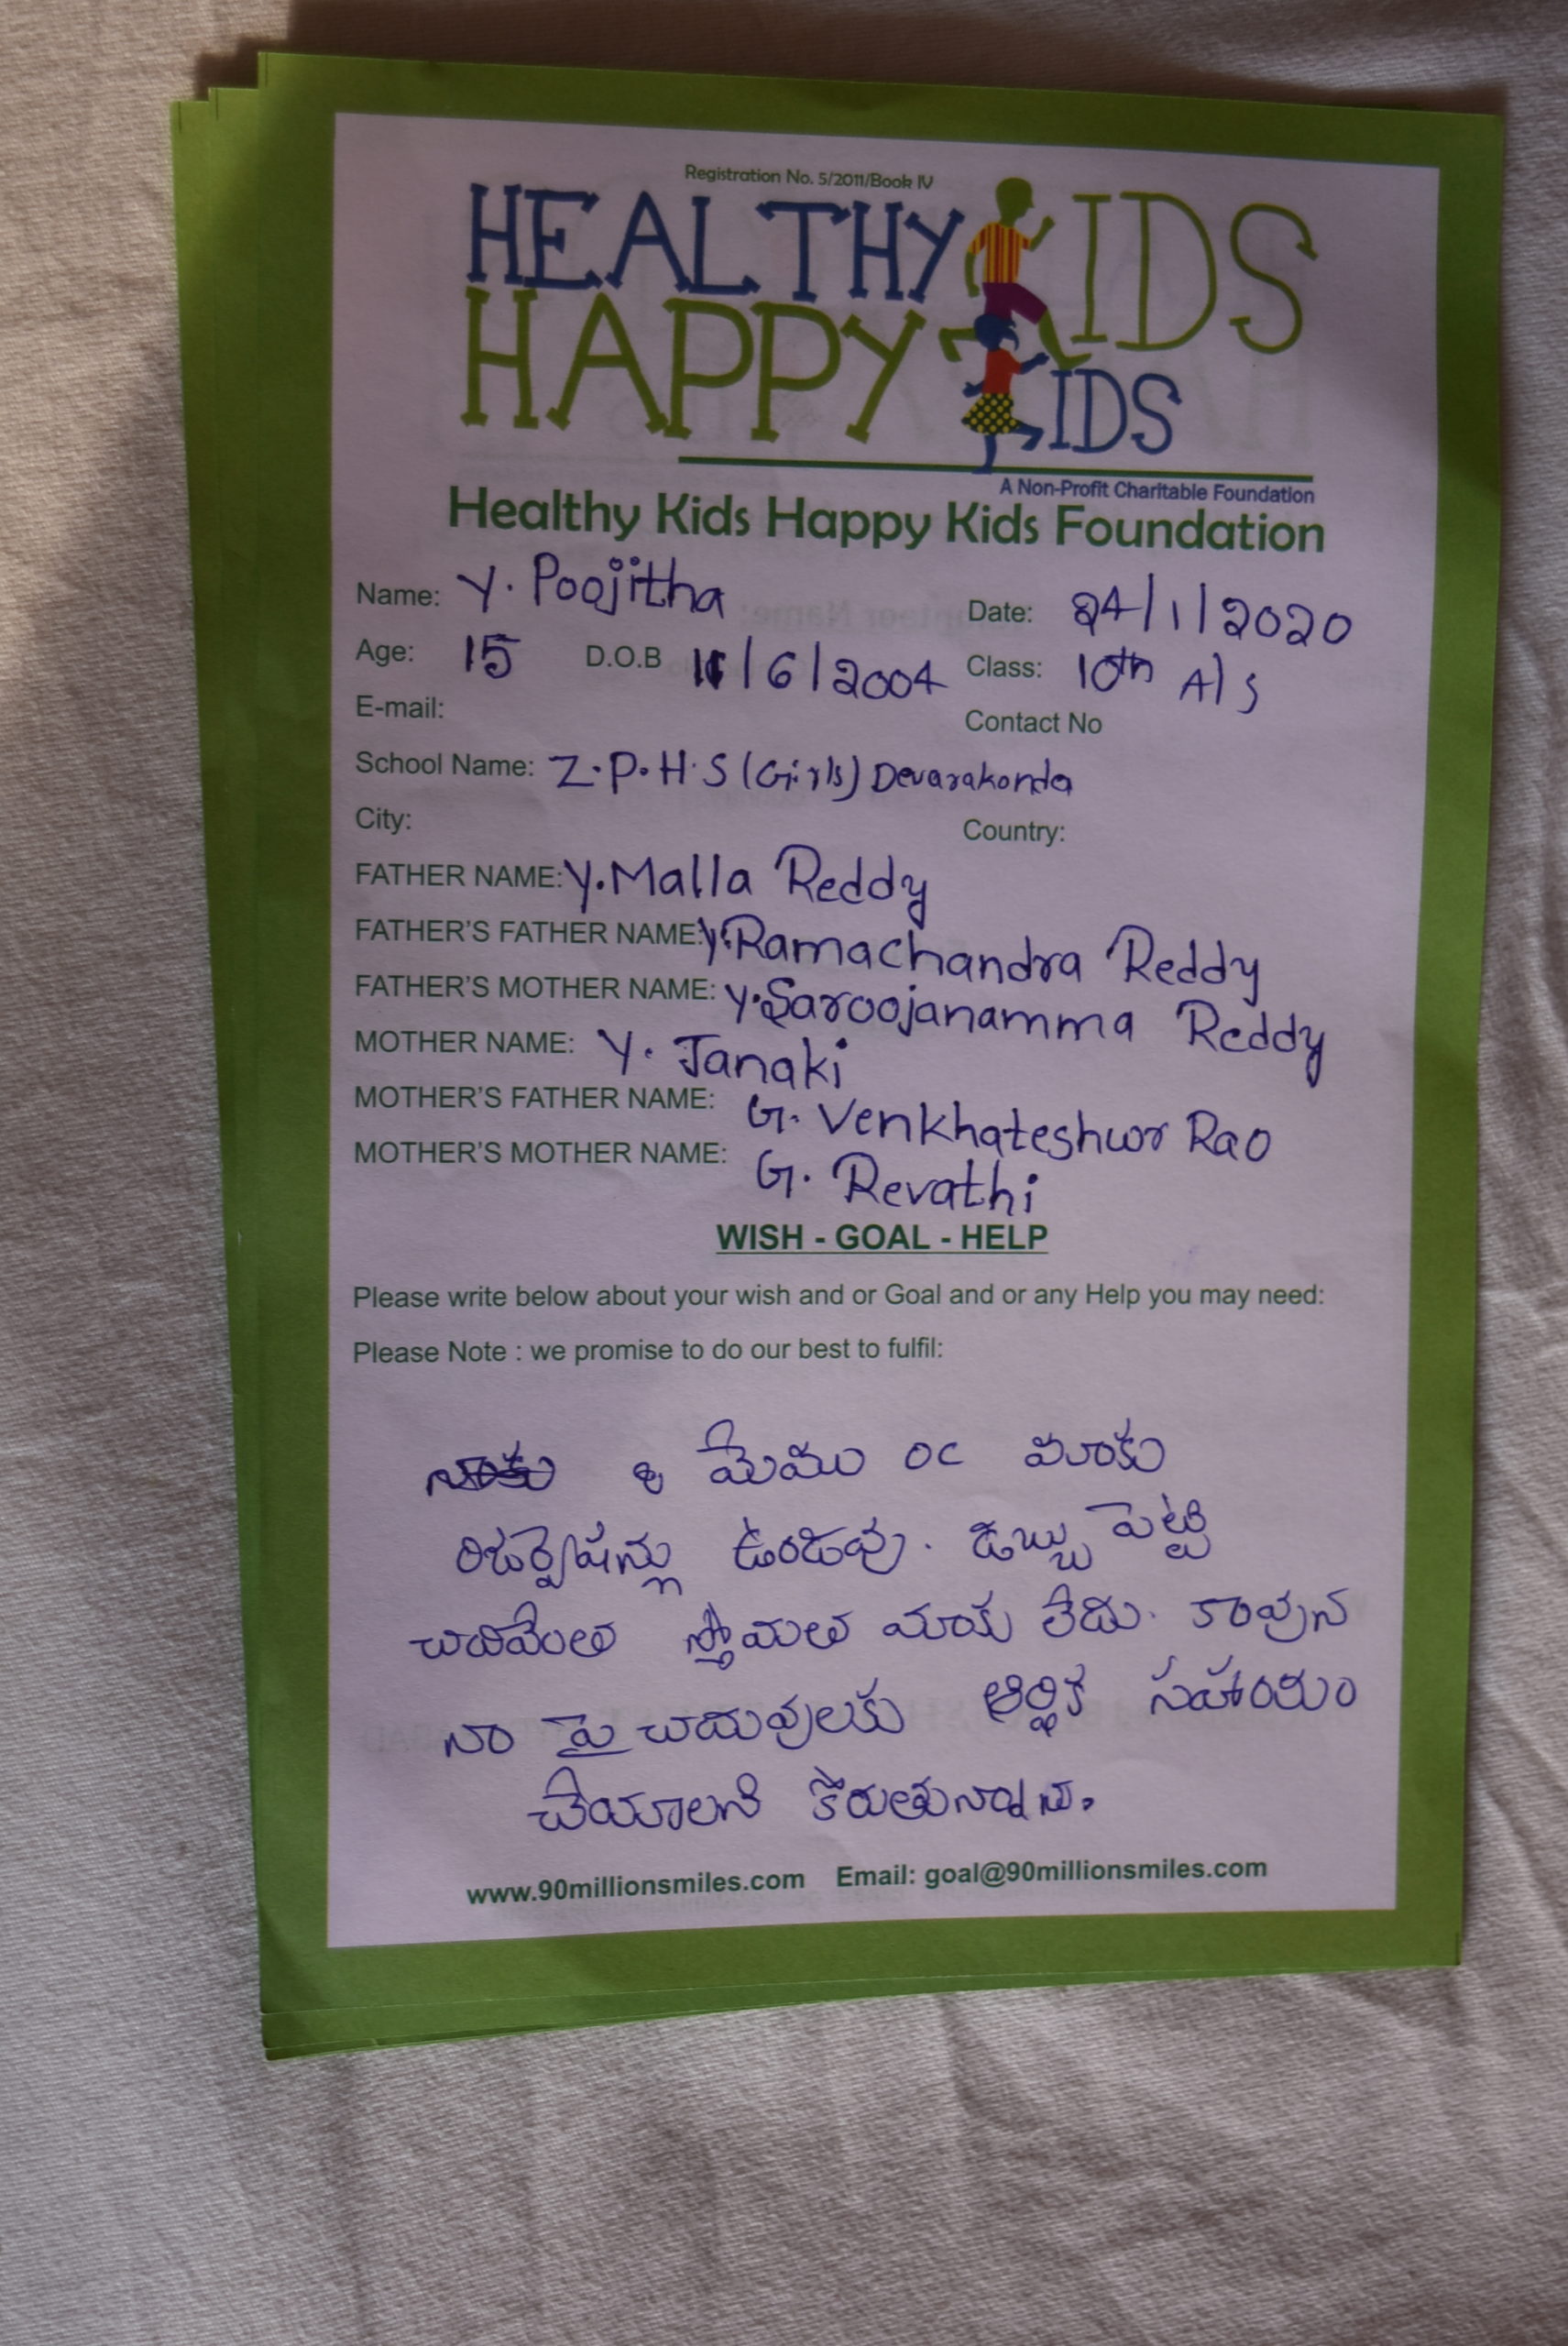 Registration No. 5/2011/Book IV
HEALTHY KIDS
HAPPY KIDS
A Non-Profit Charitable Foundation
Healthy Kids Happy Kids Foundation
Name: Y. Poojitha Date: 24/1/2020
Age: 15 D.O.B 11/6/2004 Class: 10th A/S
E-mail: Contact No
School Name: Z.P.H.S (Girls) Devarakonda
City: Country:
FATHER NAME: Y.Malla Reddy
FATHER'S FATHER NAME: Y.Ramachandra Reddy
FATHER'S MOTHER NAME: Y.Saroojanamma Reddy
MOTHER NAME: Y. Janaki
MOTHER'S FATHER NAME: G. Venkhateshwr Rao
MOTHER'S MOTHER NAME: G. Revathi
WISH - GOAL - HELP
Please write below about your wish and or Goal and or any Help you may need:
Please Note : we promise to do our best to fulfil:
మేము OC మాకు
రిజర్వేషన్లు ఉండవు. డబ్బు పెట్టి
చదివేంత స్తోమత మాకు లేదు. కావున
నా పై చదువులకు ఆర్థిక సహాయం
చేయాలని కోరుతున్నాను.
www.90millionsmiles.com Email: goal@90millionsmiles.com